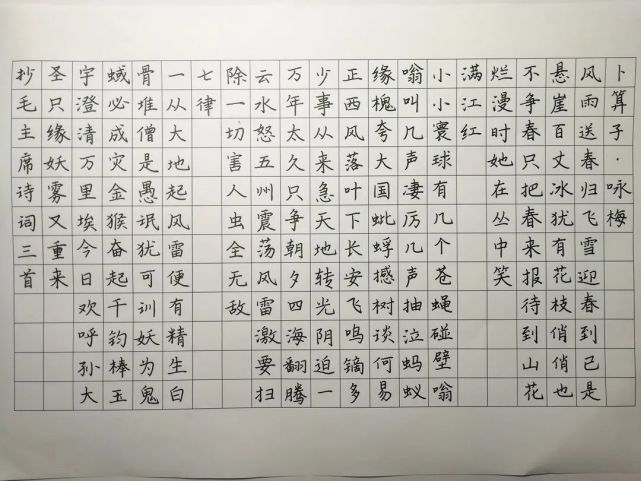 卜算子·咏梅
风雨送春归飞雪迎春到已是
悬崖百丈冰犹有花枝俏俏也
不争春只把春来报待到山花
烂漫时她在丛中笑
满江红
小小寰球有几个苍蝇碰壁嗡
嗡叫几声凄厉几声抽泣蚂蚁
缘槐夸大国蚍蜉撼树谈何易
正西风落叶下长安飞鸣镝多
少事从来急天地转光阴迫一
万年太久只争朝夕四海翻腾
云水怒五州震荡风雷激要扫
除一切害人虫全无敌
七律
一从大地起风雷便有精生白
骨堆僧是愚氓犹可训妖为鬼
蜮必成灾金猴奋起千钧棒玉
宇澄清万里埃今日欢呼孙大
圣只缘妖雾又重来
抄毛主席诗词三首